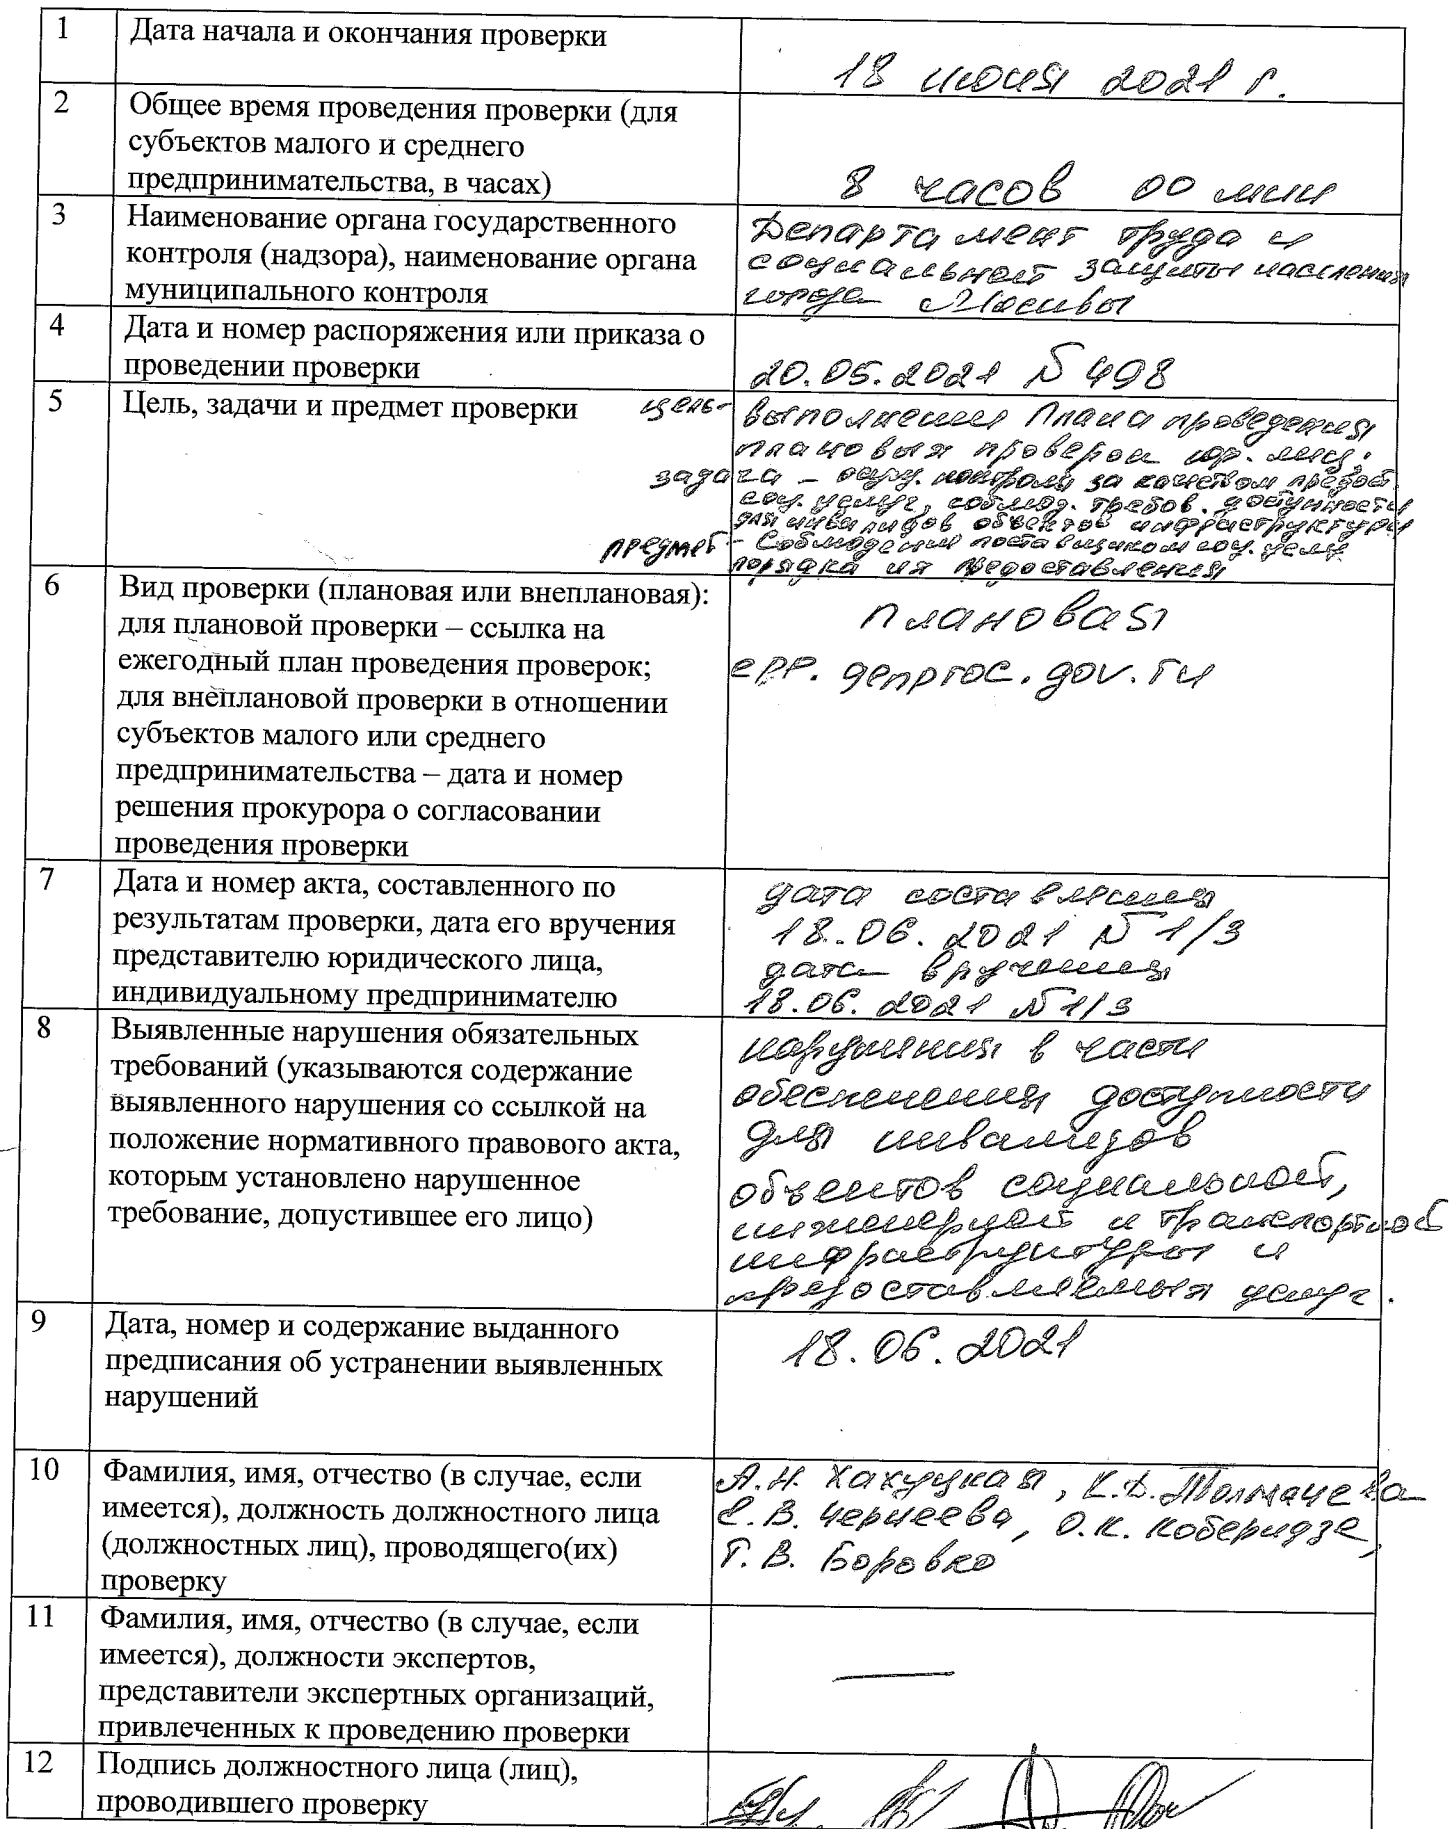 1 Дата начала и окончания проверки
18 июня 2021 г.
2 Общее время проведения проверки (для
субъектов малого и среднего
предпринимательства, в часах)
8 часов 00 мин
3 Наименование органа государственного
контроля (надзора), наименование органа
муниципального контроля
Департамент труда и
социальной защиты населения
города Москвы
4 Дата и номер распоряжения или приказа о
проведении проверки
20.05.2021 № 498
5 Цель, задачи и предмет проверки
цель- выполнения Плана проведения
плановых проверок юр. лиц;
задача – осущ. контроля за качеством предост.
соц. услуг, соблюд. требов. доступности
для инвалидов объектов инфраструктуры
предмет - Соблюдении поставщиком соц. услуг
порядка их предоставления
6 Вид проверки (плановая или внеплановая):
для плановой проверки – ссылка на
ежегодный план проведения проверок;
для внеплановой проверки в отношении
субъектов малого или среднего
предпринимательства – дата и номер
решения прокурора о согласовании
проведения проверки
плановая
epp. genproc.gov.ru
7 Дата и номер акта, составленного по
результатам проверки, дата его вручения
представителю юридического лица,
индивидуальному предпринимателю
дата составления
18.06.2021 № 1/3
дата вручения
18.06.2021 № 1/3
8 Выявленные нарушения обязательных
требований (указываются содержание
выявленного нарушения со ссылкой на
положение нормативного правового акта,
которым установлено нарушенное
требование, допустившее его лицо)
нарушения в части
обеспечения доступности
для инвалидов
объектов социальной,
инженерной и транспортной
инфраструктуры и
предоставляемых услуг.
9 Дата, номер и содержание выданного
предписания об устранении выявленных
нарушений
18.06.2021
10 Фамилия, имя, отчество (в случае, если
имеется), должность должностного лица
(должностных лиц), проводящего(их)
проверку
А.Н. Хахуцкая, К.Д. Толмачева
Е.В. Чернеева, О.К. Коберидзе,
Т.В. Боровко
11 Фамилия, имя, отчество (в случае, если
имеется), должности экспертов,
представители экспертных организаций,
привлеченных к проведению проверки
12 Подпись должностного лица (лиц),
проводившего проверку